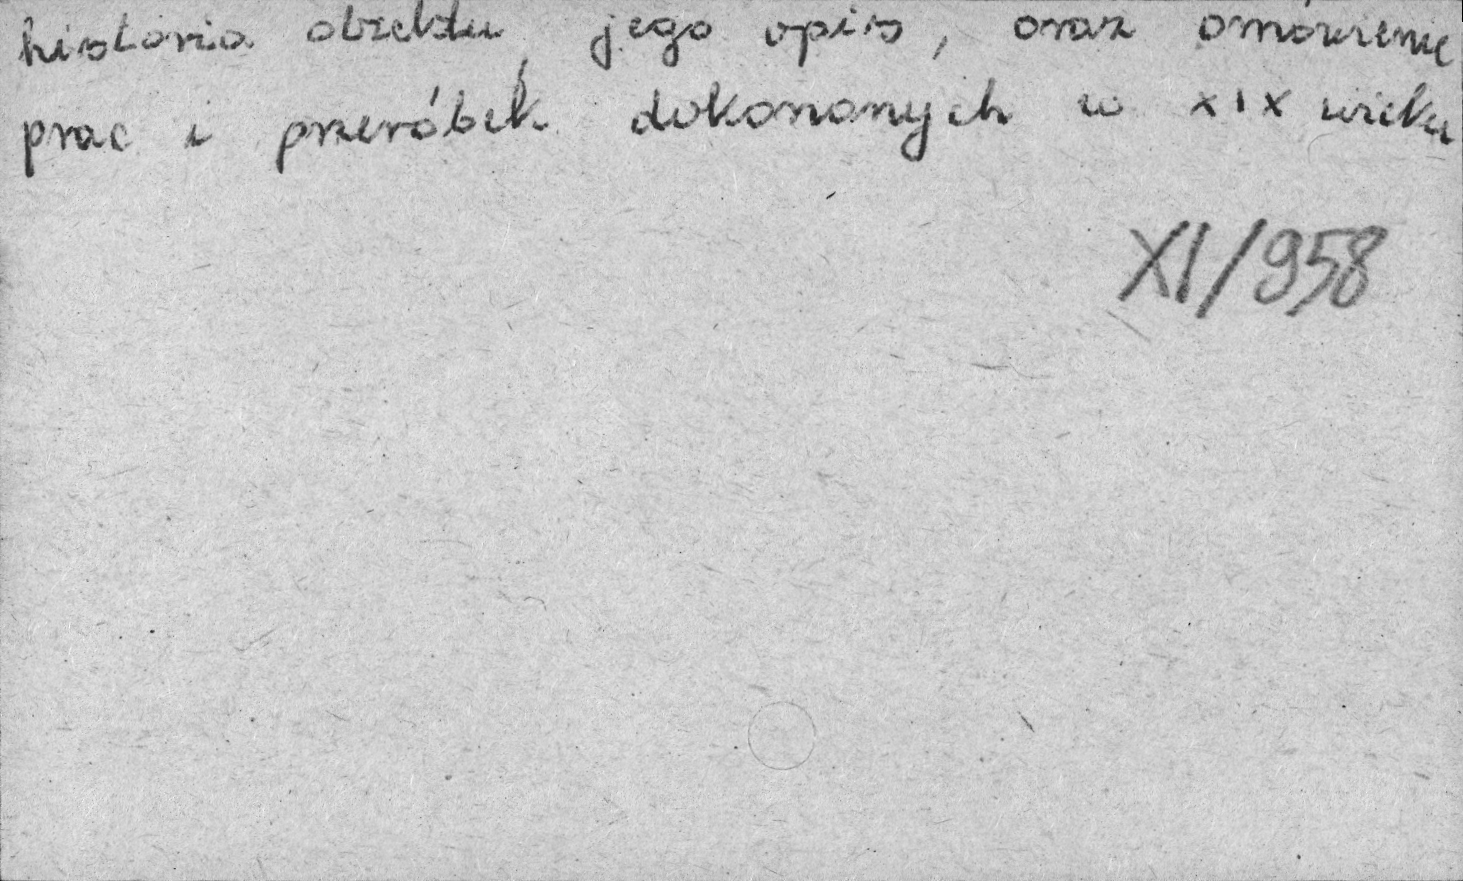 historia obiektu, jego opis, oraz omówienie
prac i przeróbek dokonanych w XIX wieku
XI/958